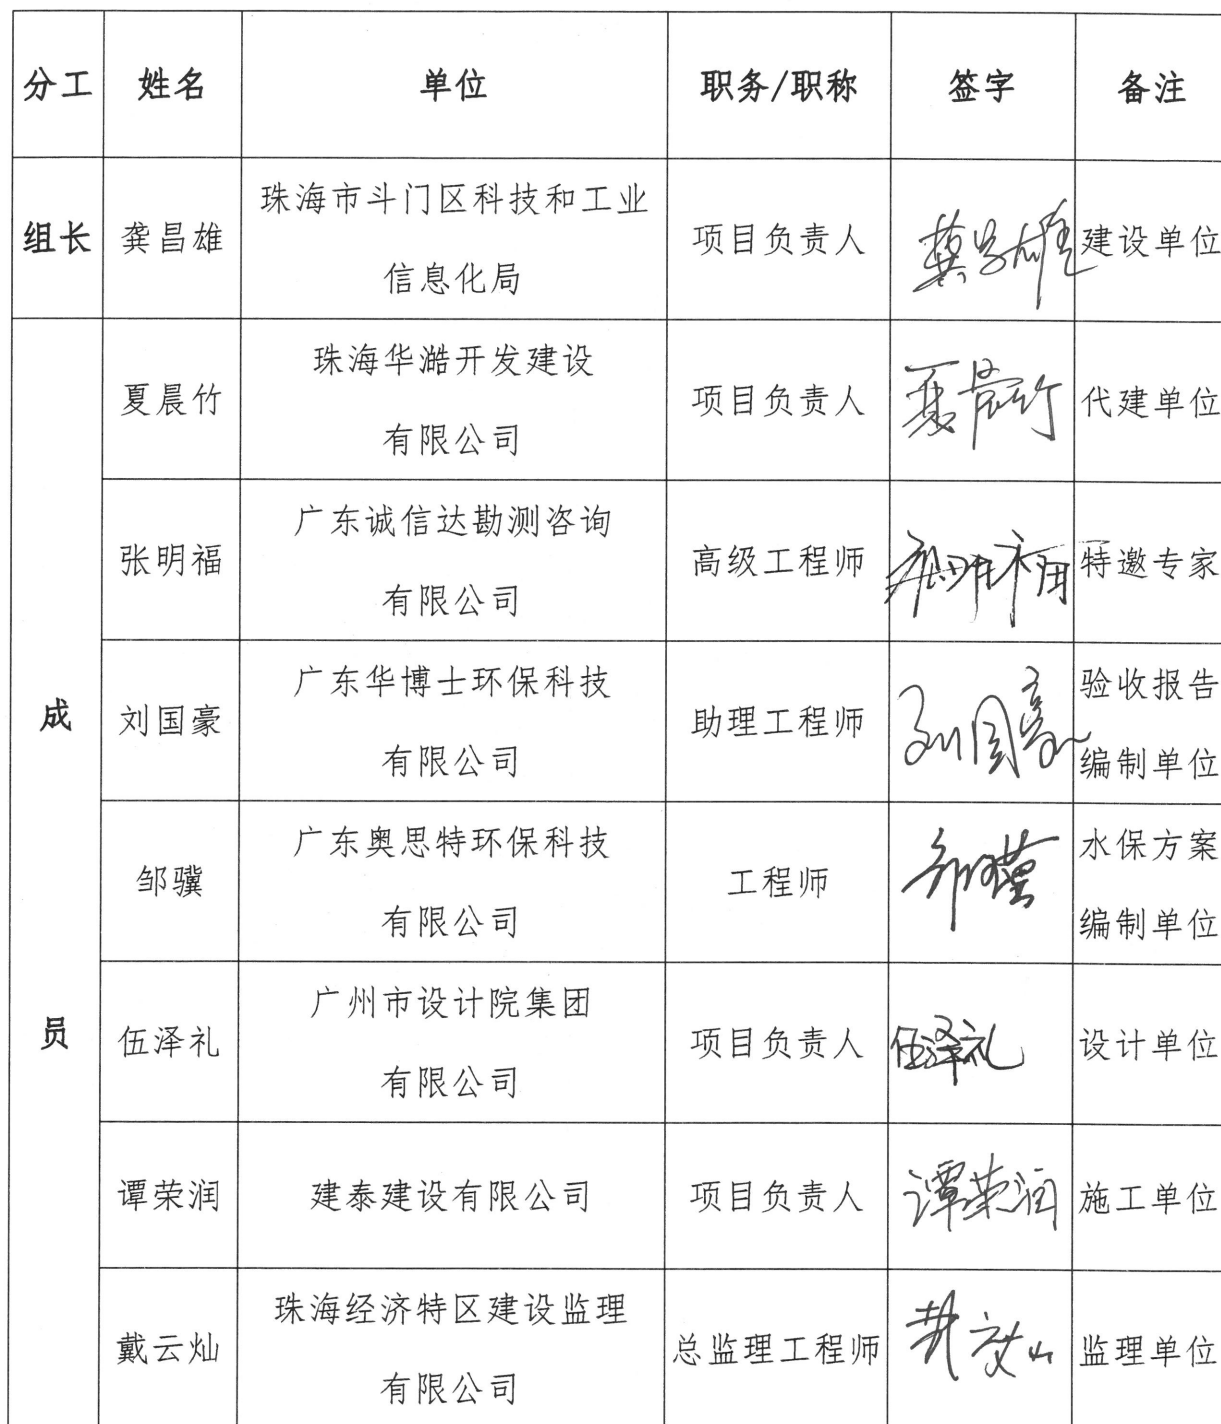 分工 姓名 单位 职务/职称 签字 备注
组长 龚昌雄 珠海市斗门区科技和工业
信息化局 项目负责人 龚昌雄 建设单位
成
员
夏晨竹 珠海华澔开发建设
有限公司 项目负责人 夏晨竹 代建单位
张明福 广东诚信达勘测咨询
有限公司 高级工程师 张明福 特邀专家
刘国豪 广东华博士环保科技
有限公司 助理工程师 刘国豪 验收报告
编制单位
邹骥 广东奥思特环保科技
有限公司 工程师 邹骥 水保方案
编制单位
伍泽礼 广州市设计院集团
有限公司 项目负责人 伍泽礼 设计单位
谭荣润 建泰建设有限公司 项目负责人 谭荣润 施工单位
戴云灿 珠海经济特区建设监理
有限公司 总监理工程师 戴云灿 监理单位